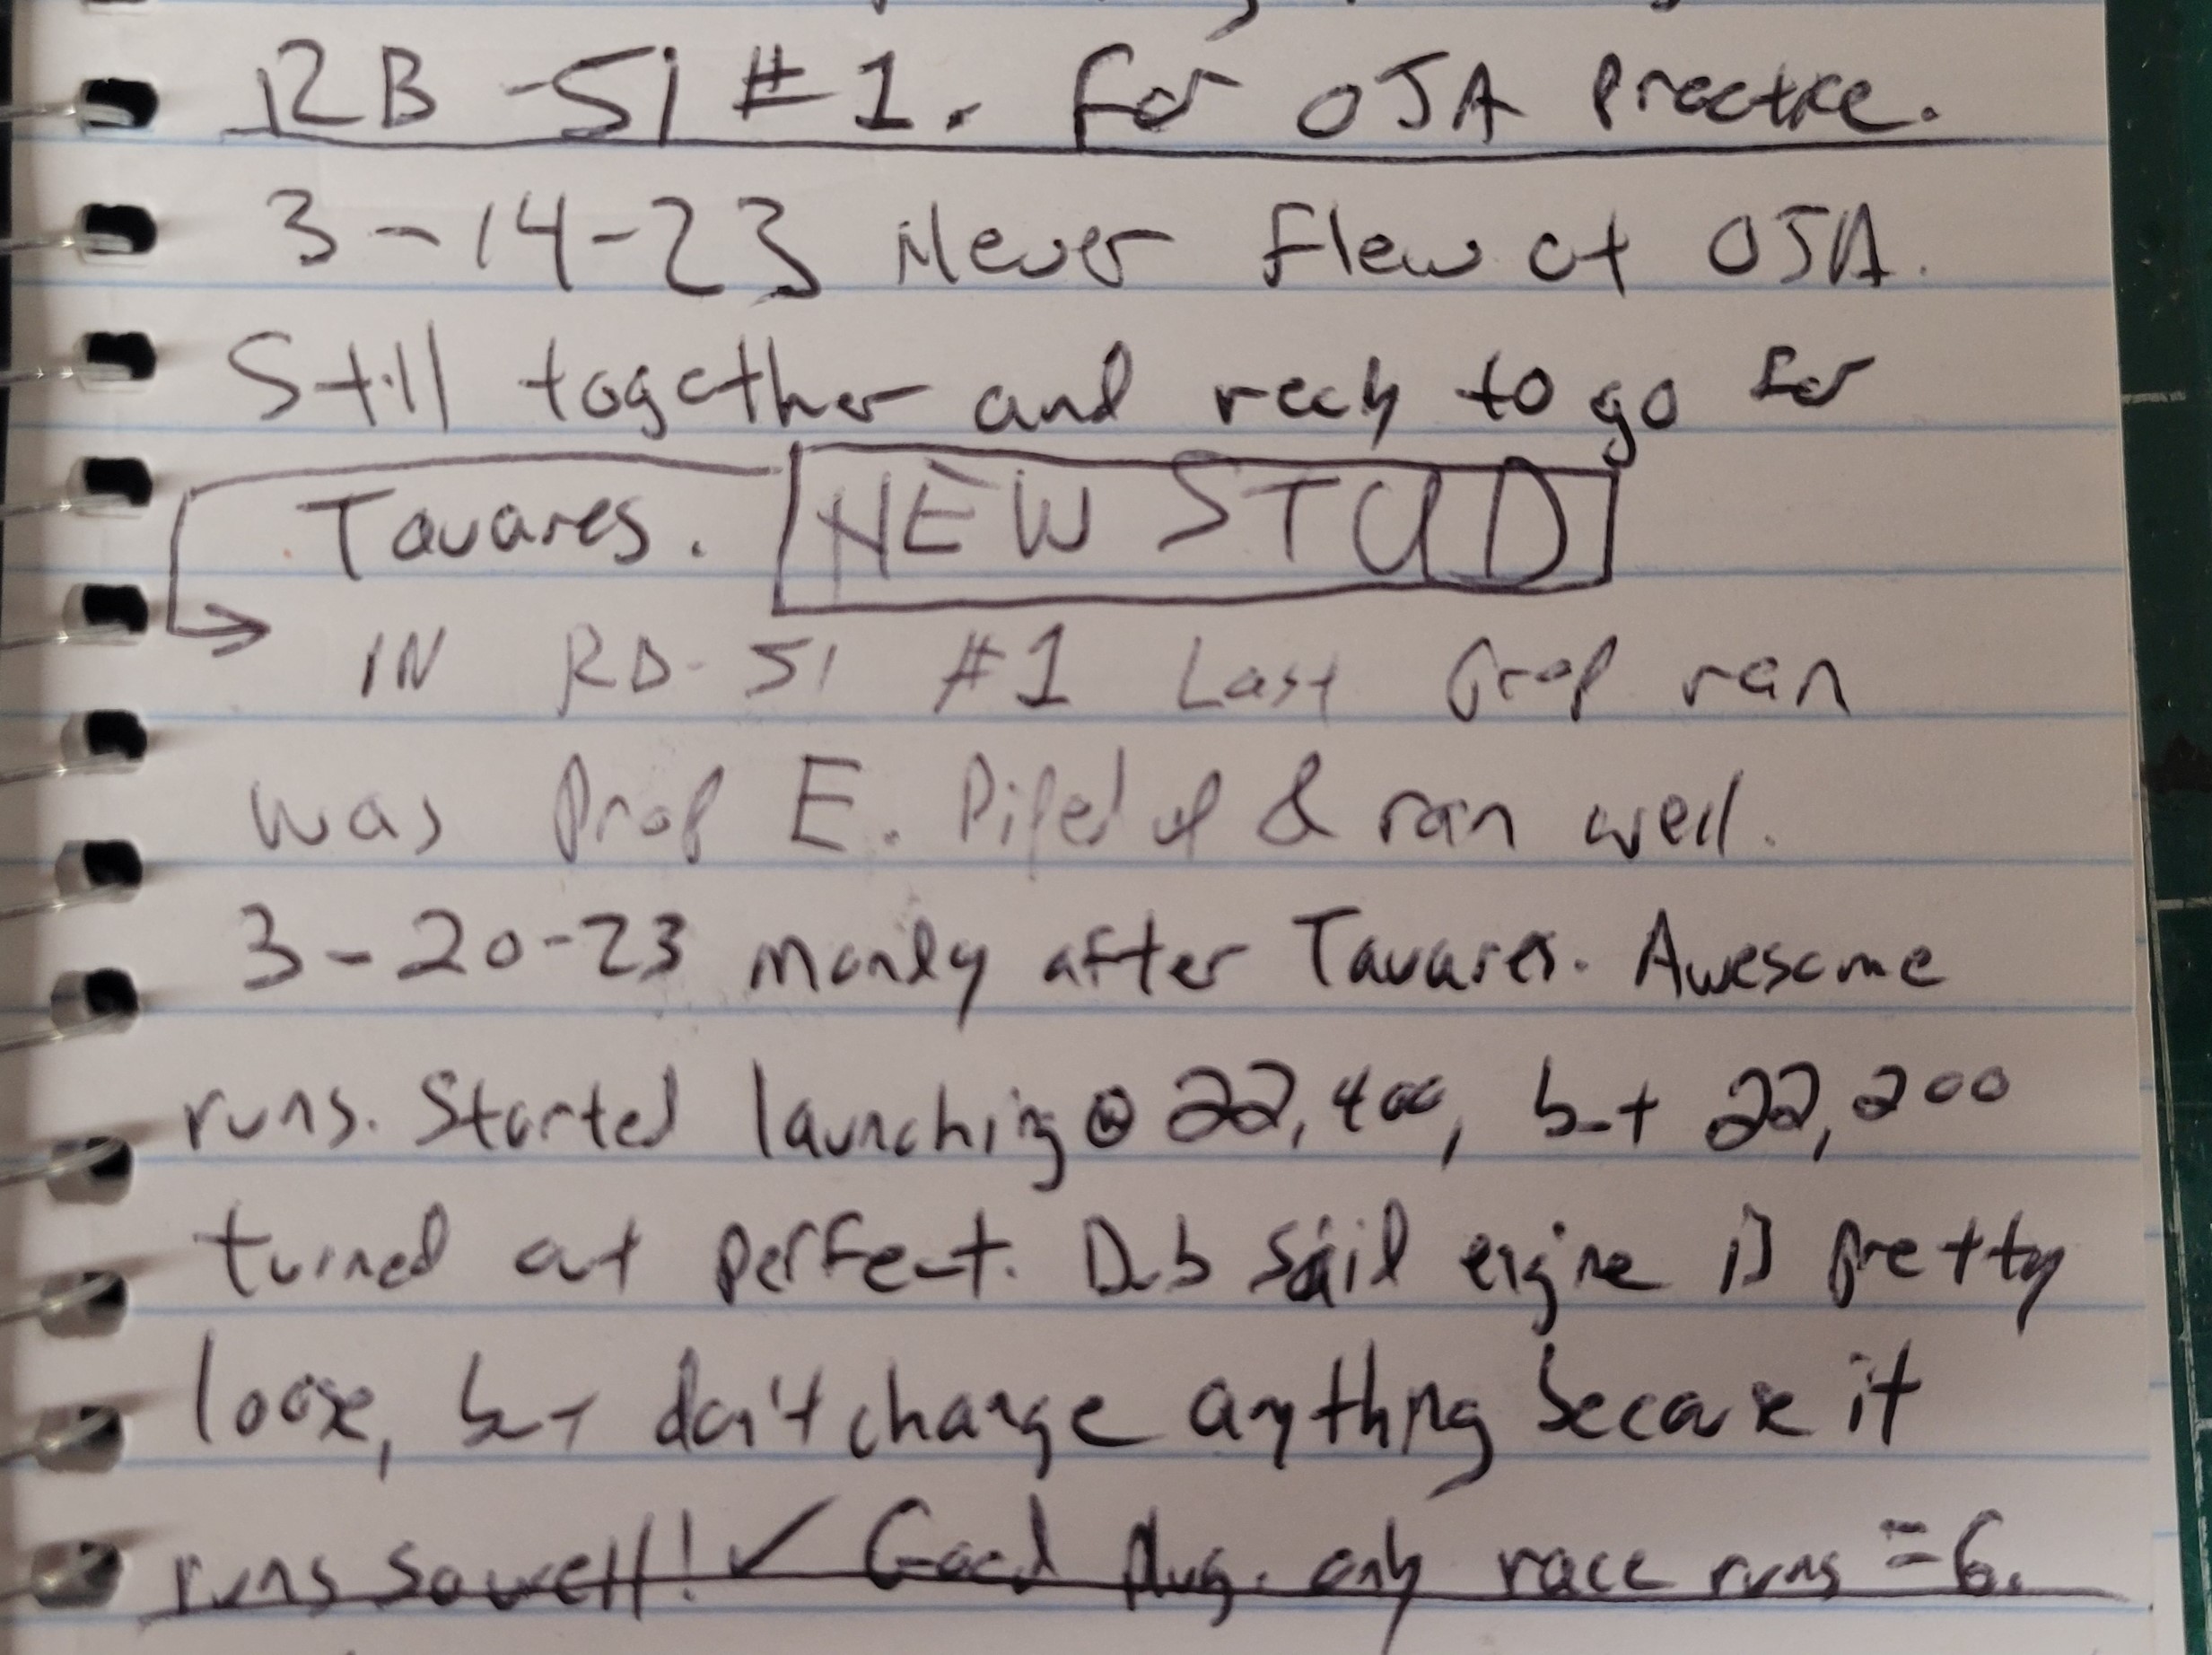 RB-51 #1. For OJA Practice.
3-14-23 Never Flew at OJA.
Still together and ready to go for
Tavares. NEW STUD
IN RB-51 #1 Last Prop ran
was Prop E. Piped up & ran well.
3-20-23 monday after Tavares. Awesome
runs. Started launching @ 22,400, but 22,200
turned out perfect. Dub said engine is pretty
loose, but don't change anything because it
runs so well! ✓ Good plug. only race runs = 6.